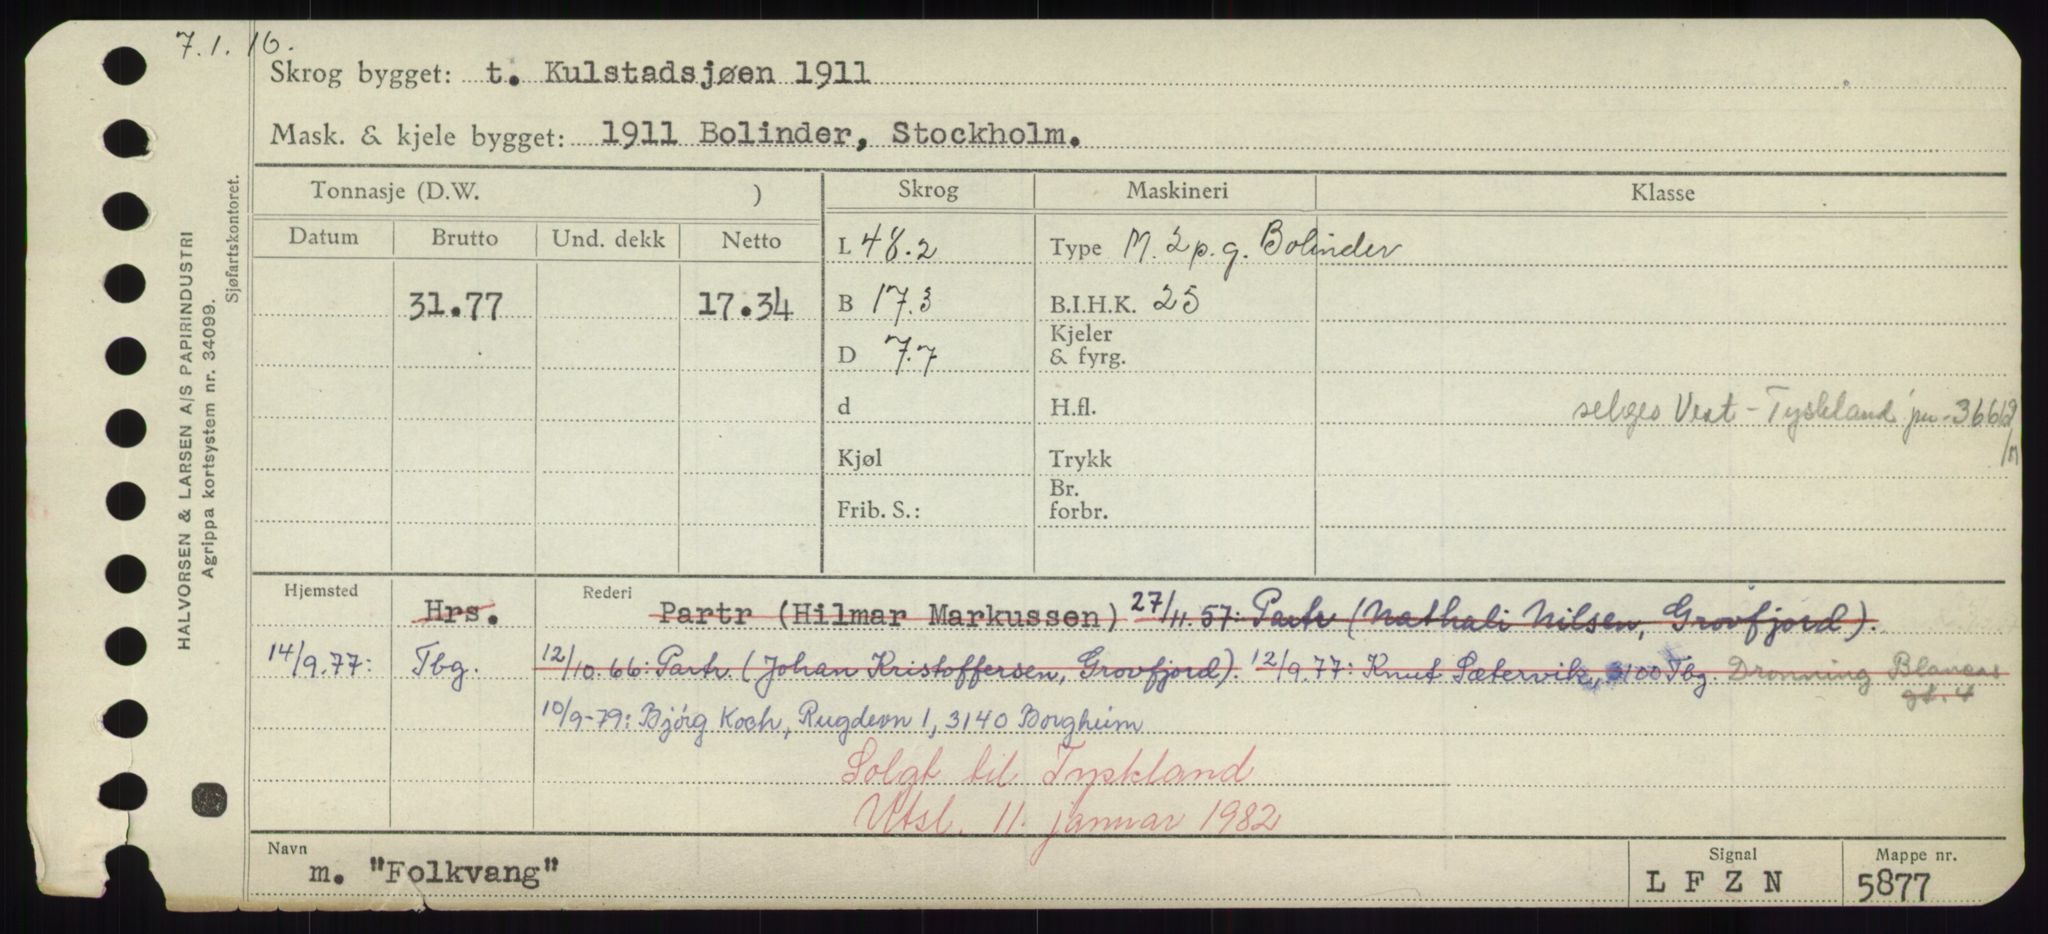 7.1.16.
Skrog bygget: t. Kulstadsjøen 1911
Mask. & kjele bygget: 1911 Bolinder, Stockholm.
HALVORSEN & LARSEN A/S PAPIRINDUSTRI
Agrippa kortsystem nr. 34099.
Sjøfartskontoret.
Tonnasje (D.W. ) Skrog Maskineri Klasse
Datum Brutto Und. dekk Netto
L 48.2 Type M. 2 p. g. Bolinder
31.77 17.34 B 17.3 B.I.H.K. 25
D 7.7 Kjeler
& fyrg.
d H.fl. selges Vest-Tyskland
Kjøl Trykk
Frib. S.: Br.
forbr.
Hjemsted Hrs. Rederi Partr (Hilmar Markussen) 27/11.57: Partr (Nathali Nilsen, Grovfjord).
14/9.77: Tbg. 12/10.66: Partr. (Johan Kristoffersen, Grovfjord). 12/9.77: Knut Sætervik, 3100 Tbg. Dronning Blancas
gt. 4
10/9-79: Bjórg Koch, Rugdevn 1, 3140 Borgheim
Solgt til Tyskland
Utsl. 11. januar 1982
Navn m. "Folkvang" Signal L F Z N Mappe nr. 5877